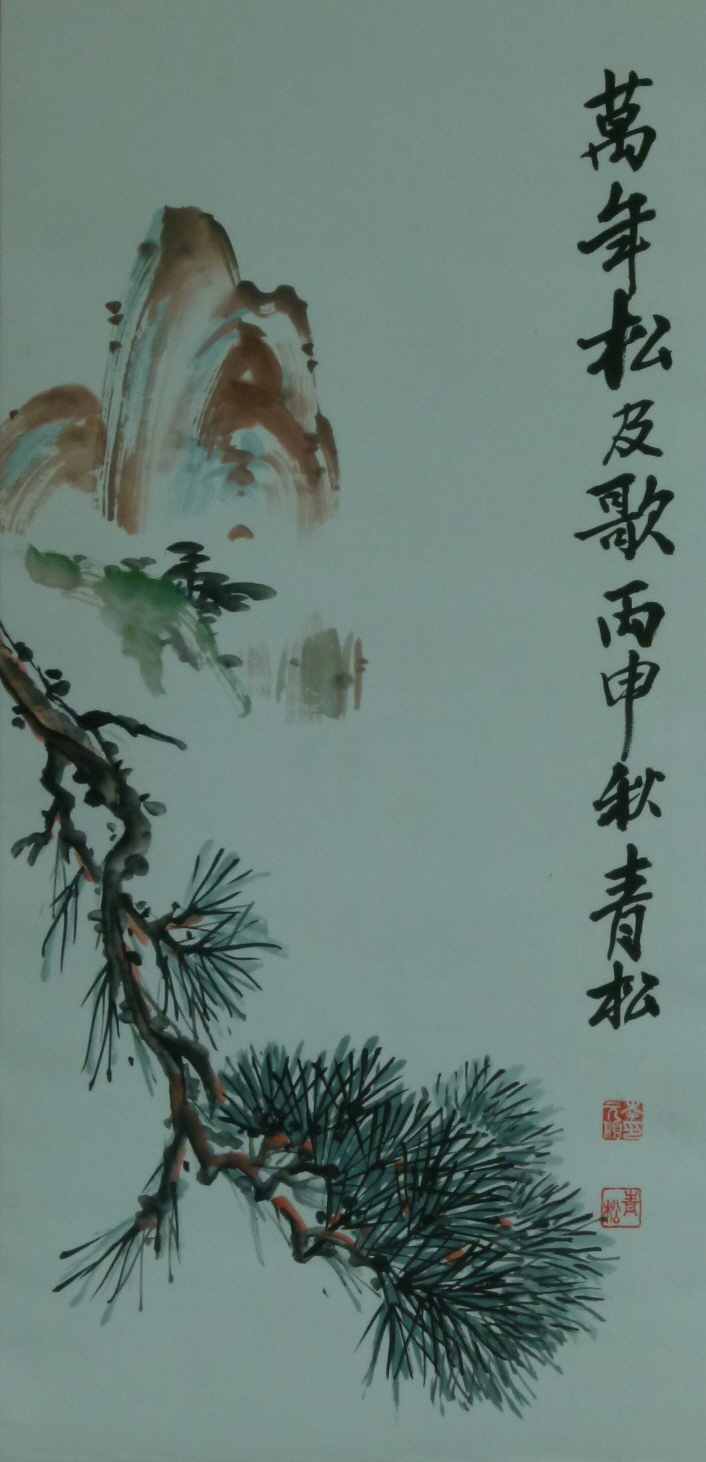 萬年松及歌丙申秋青松
青松